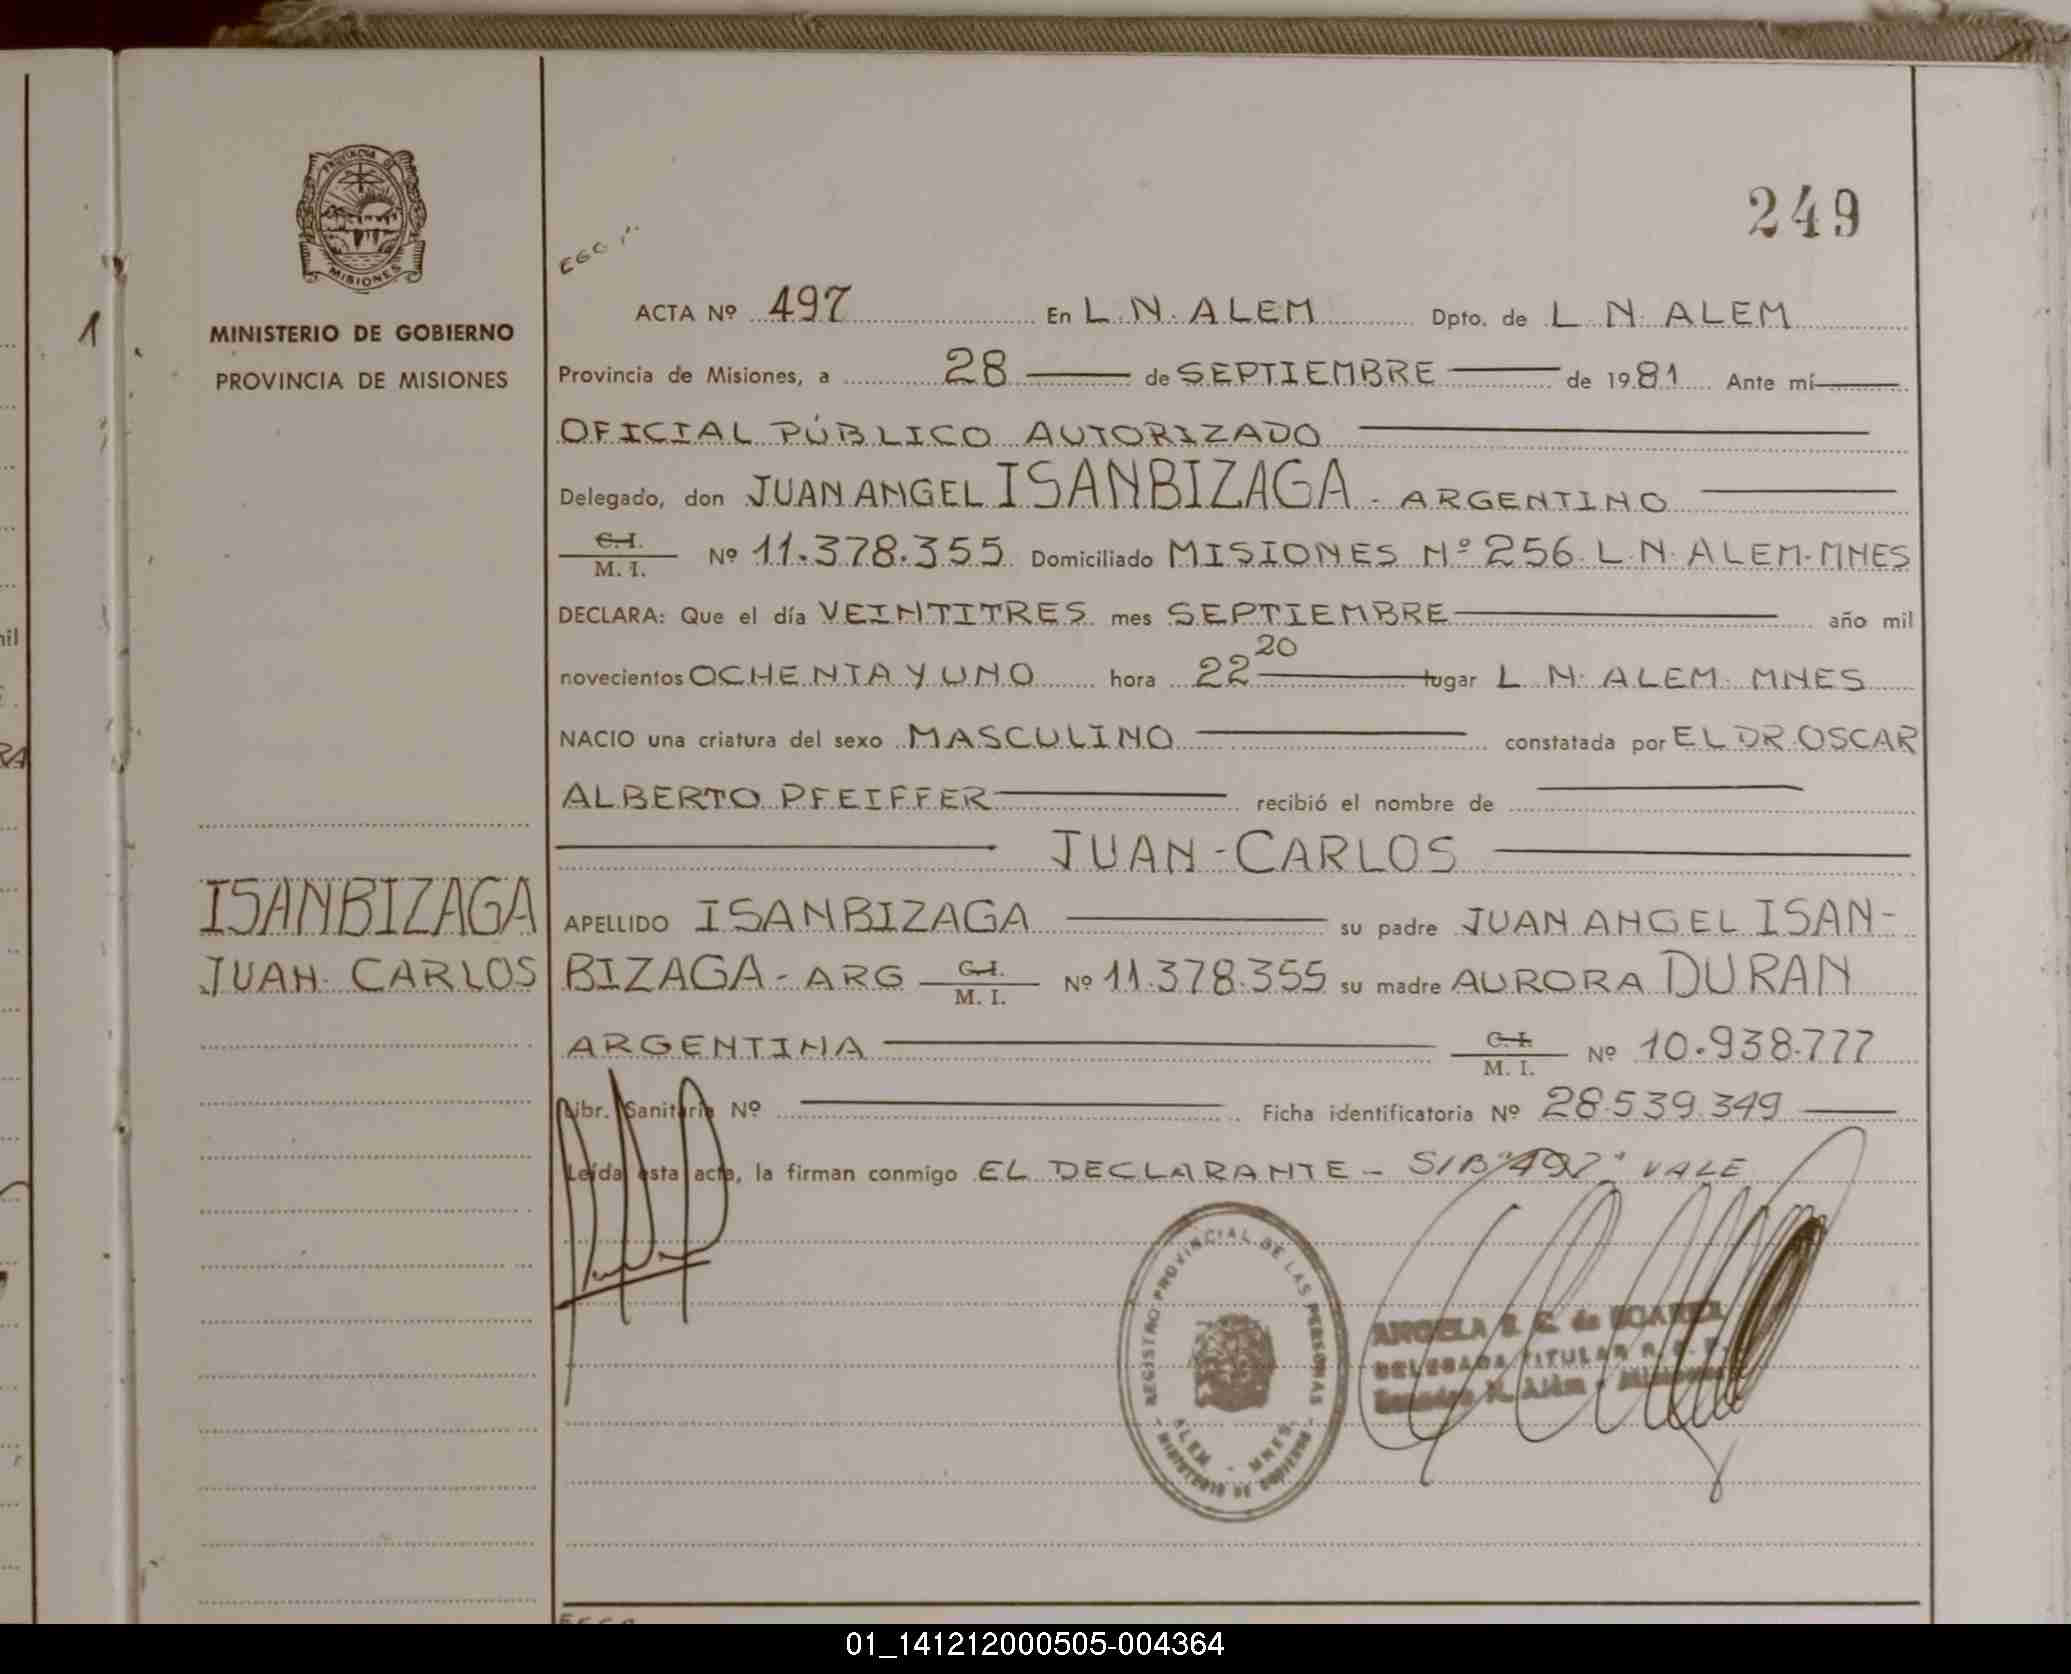 249
PROVINCIA DE
MISIONES
MINISTERIO DE GOBIERNO
PROVINCIA DE MISIONES
1
ACTA Nº 497 En L. N. ALEM Dpto. de L. N. ALEM
Provincia de Misiones, a 28 de SEPTIEMBRE de 1981 Ante mí
OFICIAL PÚBLICO AUTORIZADO
Delegado, don JUAN ANGEL ISANBIZAGA - ARGENTINO
C.I.
M. I. Nº 11.378.355 Domiciliado MISIONES Nº 256 L. N. ALEM-MNES
DECLARA: Que el día VEINTITRES mes SEPTIEMBRE año mil
novecientos OCHENTA Y UNO hora 22 20 lugar L. N. ALEM. MNES
NACIO una criatura del sexo MASCULINO constatada por EL DR. OSCAR
ALBERTO PFEIFFER recibió el nombre de
JUAN-CARLOS
ISANBIZAGA
JUAN-CARLOS
APELLIDO ISANBIZAGA su padre JUAN ANGEL ISAN-
BIZAGA - ARG C.I. M. I. Nº 11.378.355 su madre AURORA DURAN
ARGENTINA C.I. M. I. Nº 10.938.777
Libr. Sanitaria Nº Ficha identificatoria Nº 28.539.349
Leída esta acta, la firman conmigo EL DECLARANTE - S/B "497" VALE
REGISTRO PROVINCIAL DE LAS PERSONAS
ALEM - MNES.
MINISTERIO DE GOBIERNO
ANGELA de
DELEGADA TITULAR
Leandro N. Alem - Misiones
01_141212000505-004364